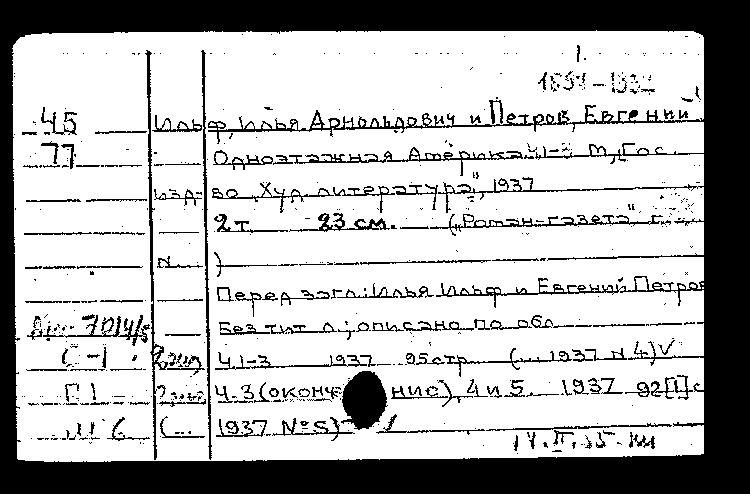 1.
1897-1937
45 Ильф, Илья Арнольдович и Петров, Евгений
77 Одноэтажная Америка. Ч.1-3 М., Гос.
изд-во „Худ. литература", 1937
2 т. 23 см. („Роман-газета" г. ...
N... )
Перед загл.: Илья Ильф и Евгений Петров
7014/5 Без тит. л.; описано по обл.
С-1 2 экз. Ч.1-3 1937 95 стр. (... 1937 N 4) V
П1 Ч.3 (оконч ние), 4 и 5. 1937 92[1] с
М 6 (... 1937 № 5)